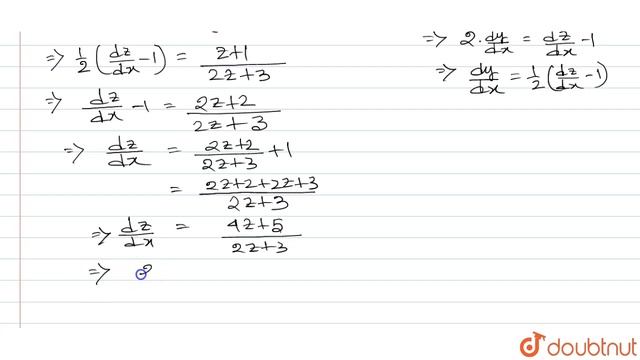 => 1/2 (dz/dx - 1) = z+1 / 2z+3
=> dz/dx - 1 = 2z+2 / 2z+3
=> dz/dx = 2z+2 / 2z+3 + 1
= 2z+2+2z+3 / 2z+3
=> dz/dx = 4z+5 / 2z+3
=>
=> 2. dy/dx = dz/dx - 1
=> dy/dx = 1/2 (dz/dx - 1)
doubtnut